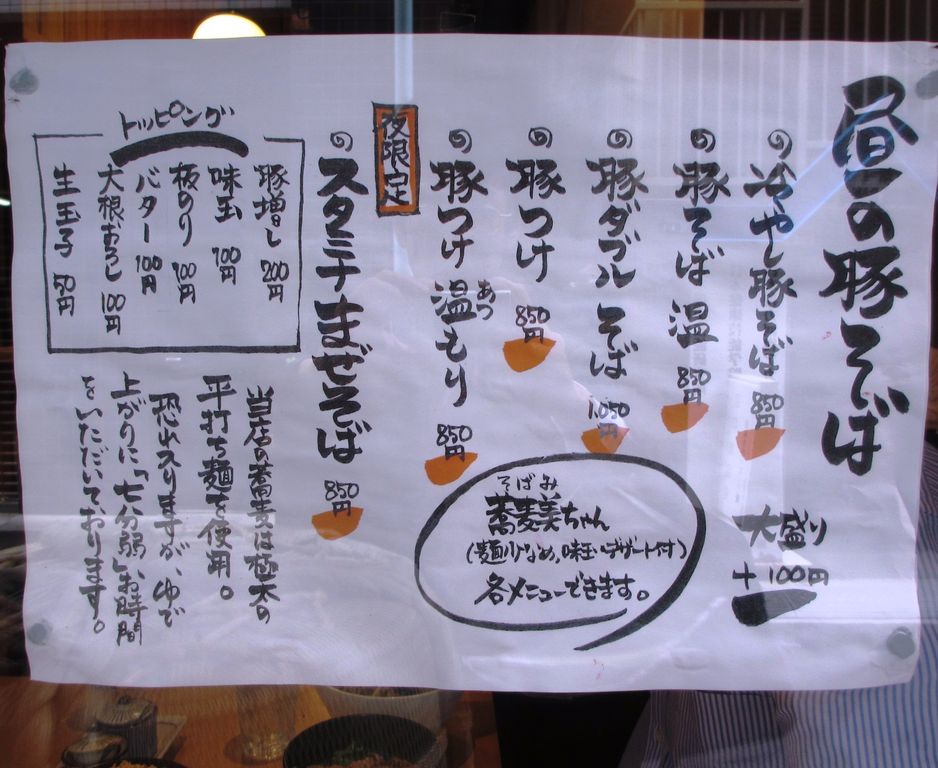 昼の豚そば
の冷やし豚そば 850円
の豚そば 温 850円
の豚ダブルそば 1,050円
の豚つけ 850円
の豚つけ 温もり 850円
あつ
夜限定
のスタミナまぜそば 850円
大盛り
+100円
そばみ
蕎麦美ちゃん
(麺少なめ、味玉・デザート付)
各メニューできます。
トッピング
豚増し 200円
味玉 100円
板のり 100円
バター 100円
大根おろし 100円
生玉子 50円
当店の蕎麦は極太の
平打ち麺を使用。
恐れ入りますが、ゆで
上がりに「七分弱」お時間
をいただいております。